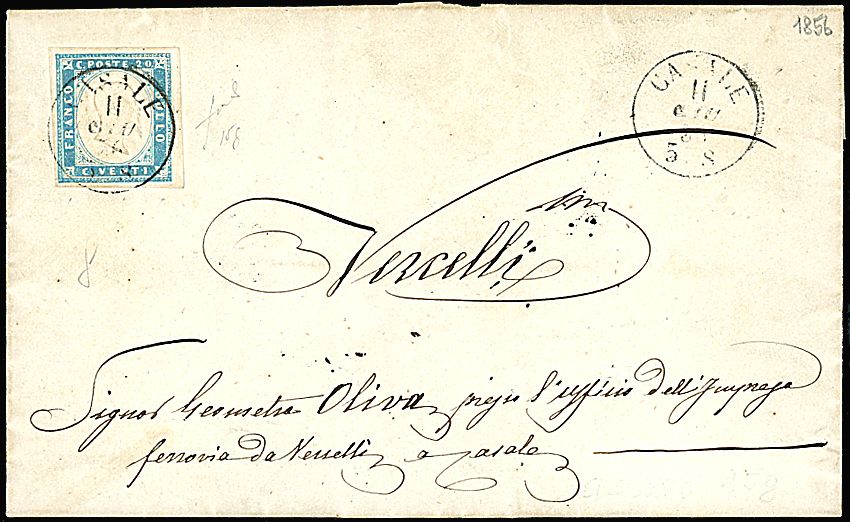 1856
C. POSTE. 20
FRANCO
BOLLO
C. VENTI
CASALE
11
GIU
CASALE
11
GIU
5 S
8
Vercelli
Signor Geometra Oliva presso l'ufficio dell'Impresa
ferrovia da Vercelli a Casale